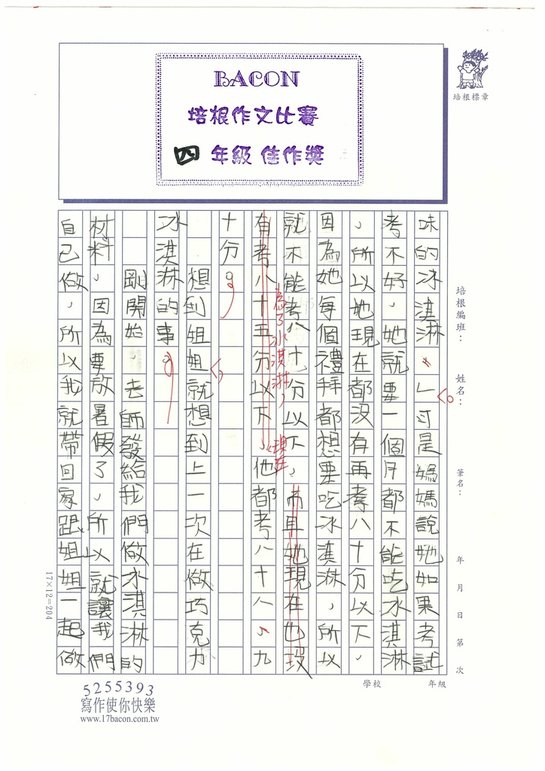 BACON
培根作文比賽
四年級佳作獎
培根標章
培根編班：
姓名：
筆名：
年月日第次
學校
年級
味的冰淇淋。」可是媽媽說她如果考試
考不好，她就要一個月都不能吃冰淇淋
，所以她現在都沒有再考八十分以下，
因為她每個禮拜都想要吃冰淇淋，所以
就不能考八十分以下，而且她現在也沒
為了冰淇淋，現在
有考八十五分以下，他都考八十八、九
十分。
想到姐姐就想到上一次在做巧克力
冰淇淋的事。
剛開始，老師發給我們做冰淇淋的
材料，因為要放暑假了，所以就讓我們
自己做，所以我就帶回家跟姐姐一起做
17×12=204
5255393
寫作使你快樂
www.17bacon.com.tw